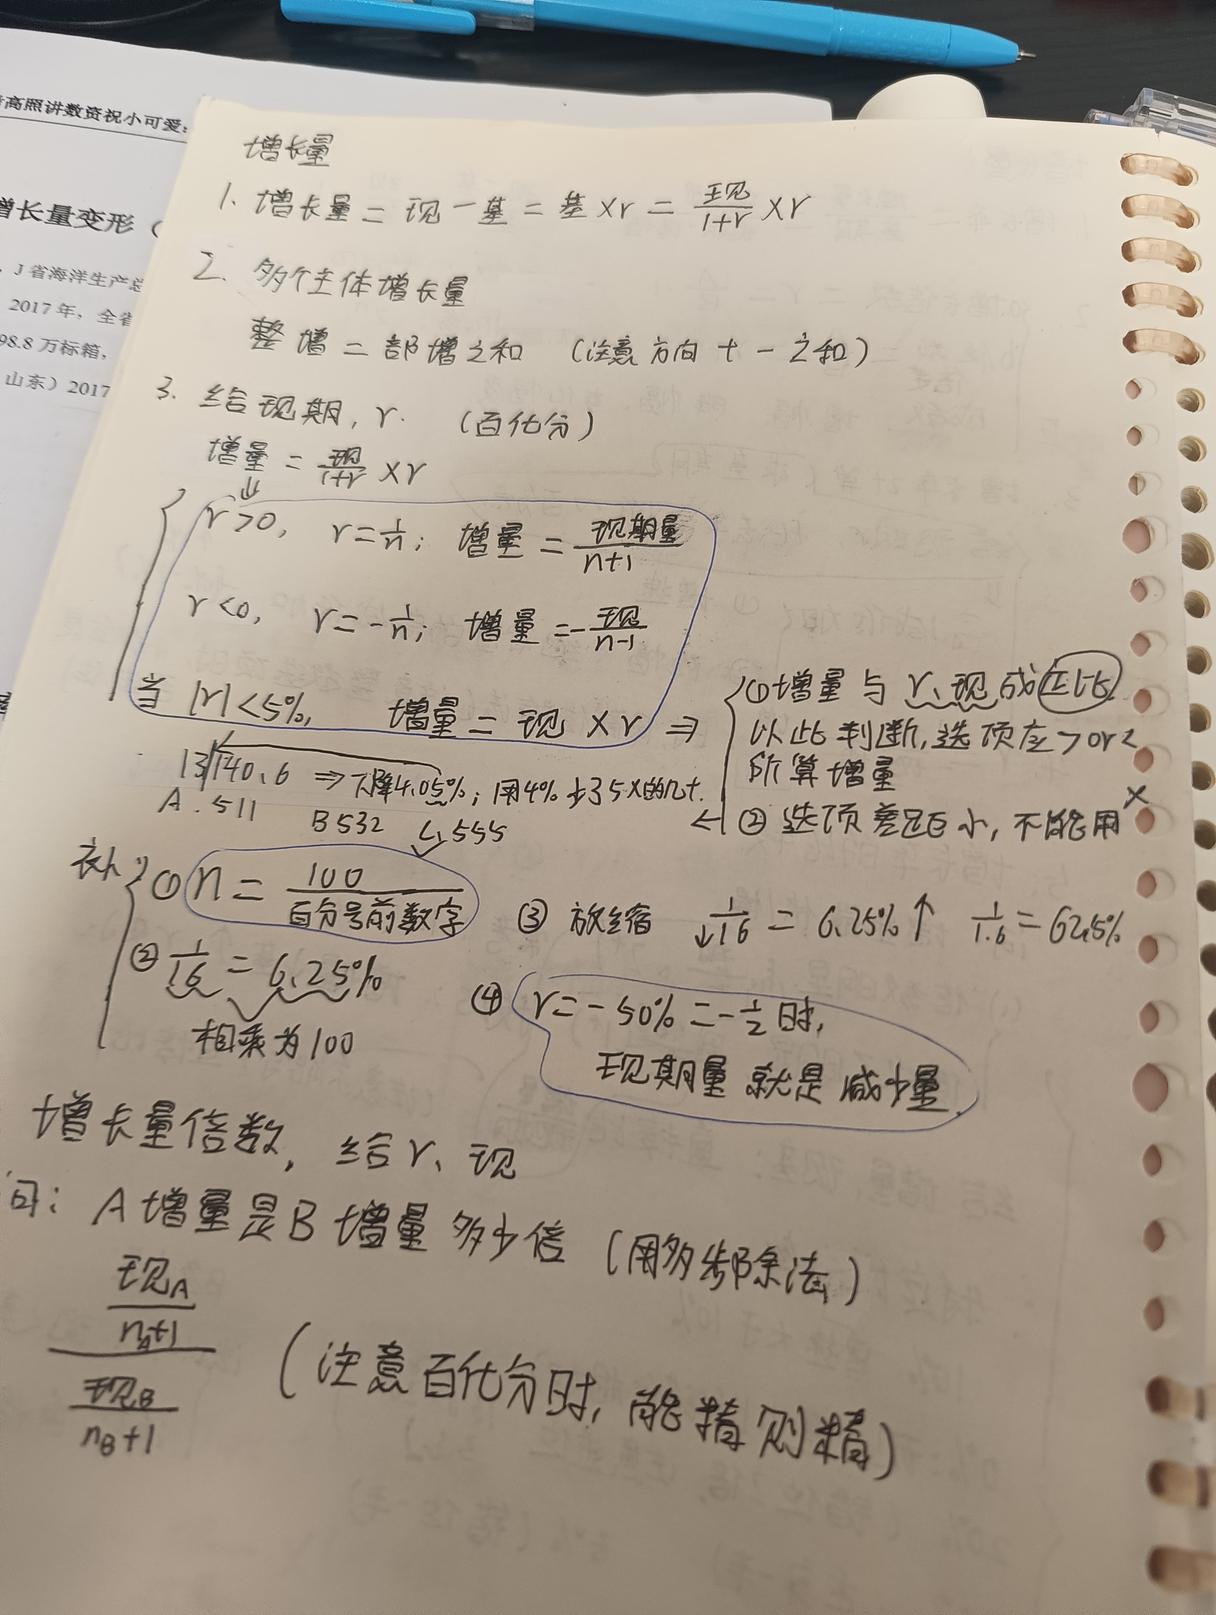 高照讲数资祝小可爱:
增长量变形（
，J 省海洋生产总
2017年，全省
98.8 万标箱，
山东）2017
增长量
1. 增长量 = 现-基 = 基×r = 现/(1+r) ×r
2. 多个主体增长量
整增 = 部增之和 （注意方向 + - 之和）
3. 给现期, r. （百化分）
增量 = 现/(1+r) ×r
⇓
r>0, r=1/n; 增量 = 现期量/(n+1)
r<0, r=-1/n; 增量 =-现/(n-1)
当 |r|<5%, 增量 = 现 × r ⇒
①增量与 r、现 成正比
以此判断,选项应>or<
所算增量
② 选项差距小, 不能用
×
13740.6 ⇒ 下降4.05%; 用4%少35×的几十.
A. 511 B 532 555
补
① n = 100/百分号前数字
② 1/16 = 6.25%
相乘为100
③ 放缩 ↓1/16 = 6.25%↑ 1/1.6 = 62.5%
④ r=-50%=-1/2时,
现期量 就是 减少量
增长量倍数, 给 r、现
问: A 增量是 B 增量 多少倍 (用多步除法)
现A/(nA+1)
现B/(nB+1)
(注意百化分时, 能精则精)